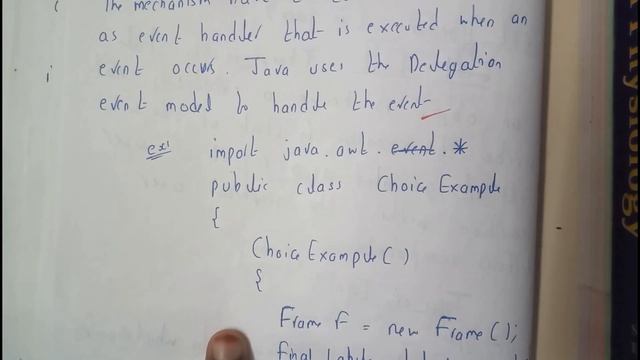 The mechanism have
as event handler that is executed when an
event occurs. Java uses the Delegation
event model to handle the event
ex: import java.awt.event.*
public class Choice Example
{
Choice Example ( )
{
Frame f = new Frame ( );
final Label
Physiology